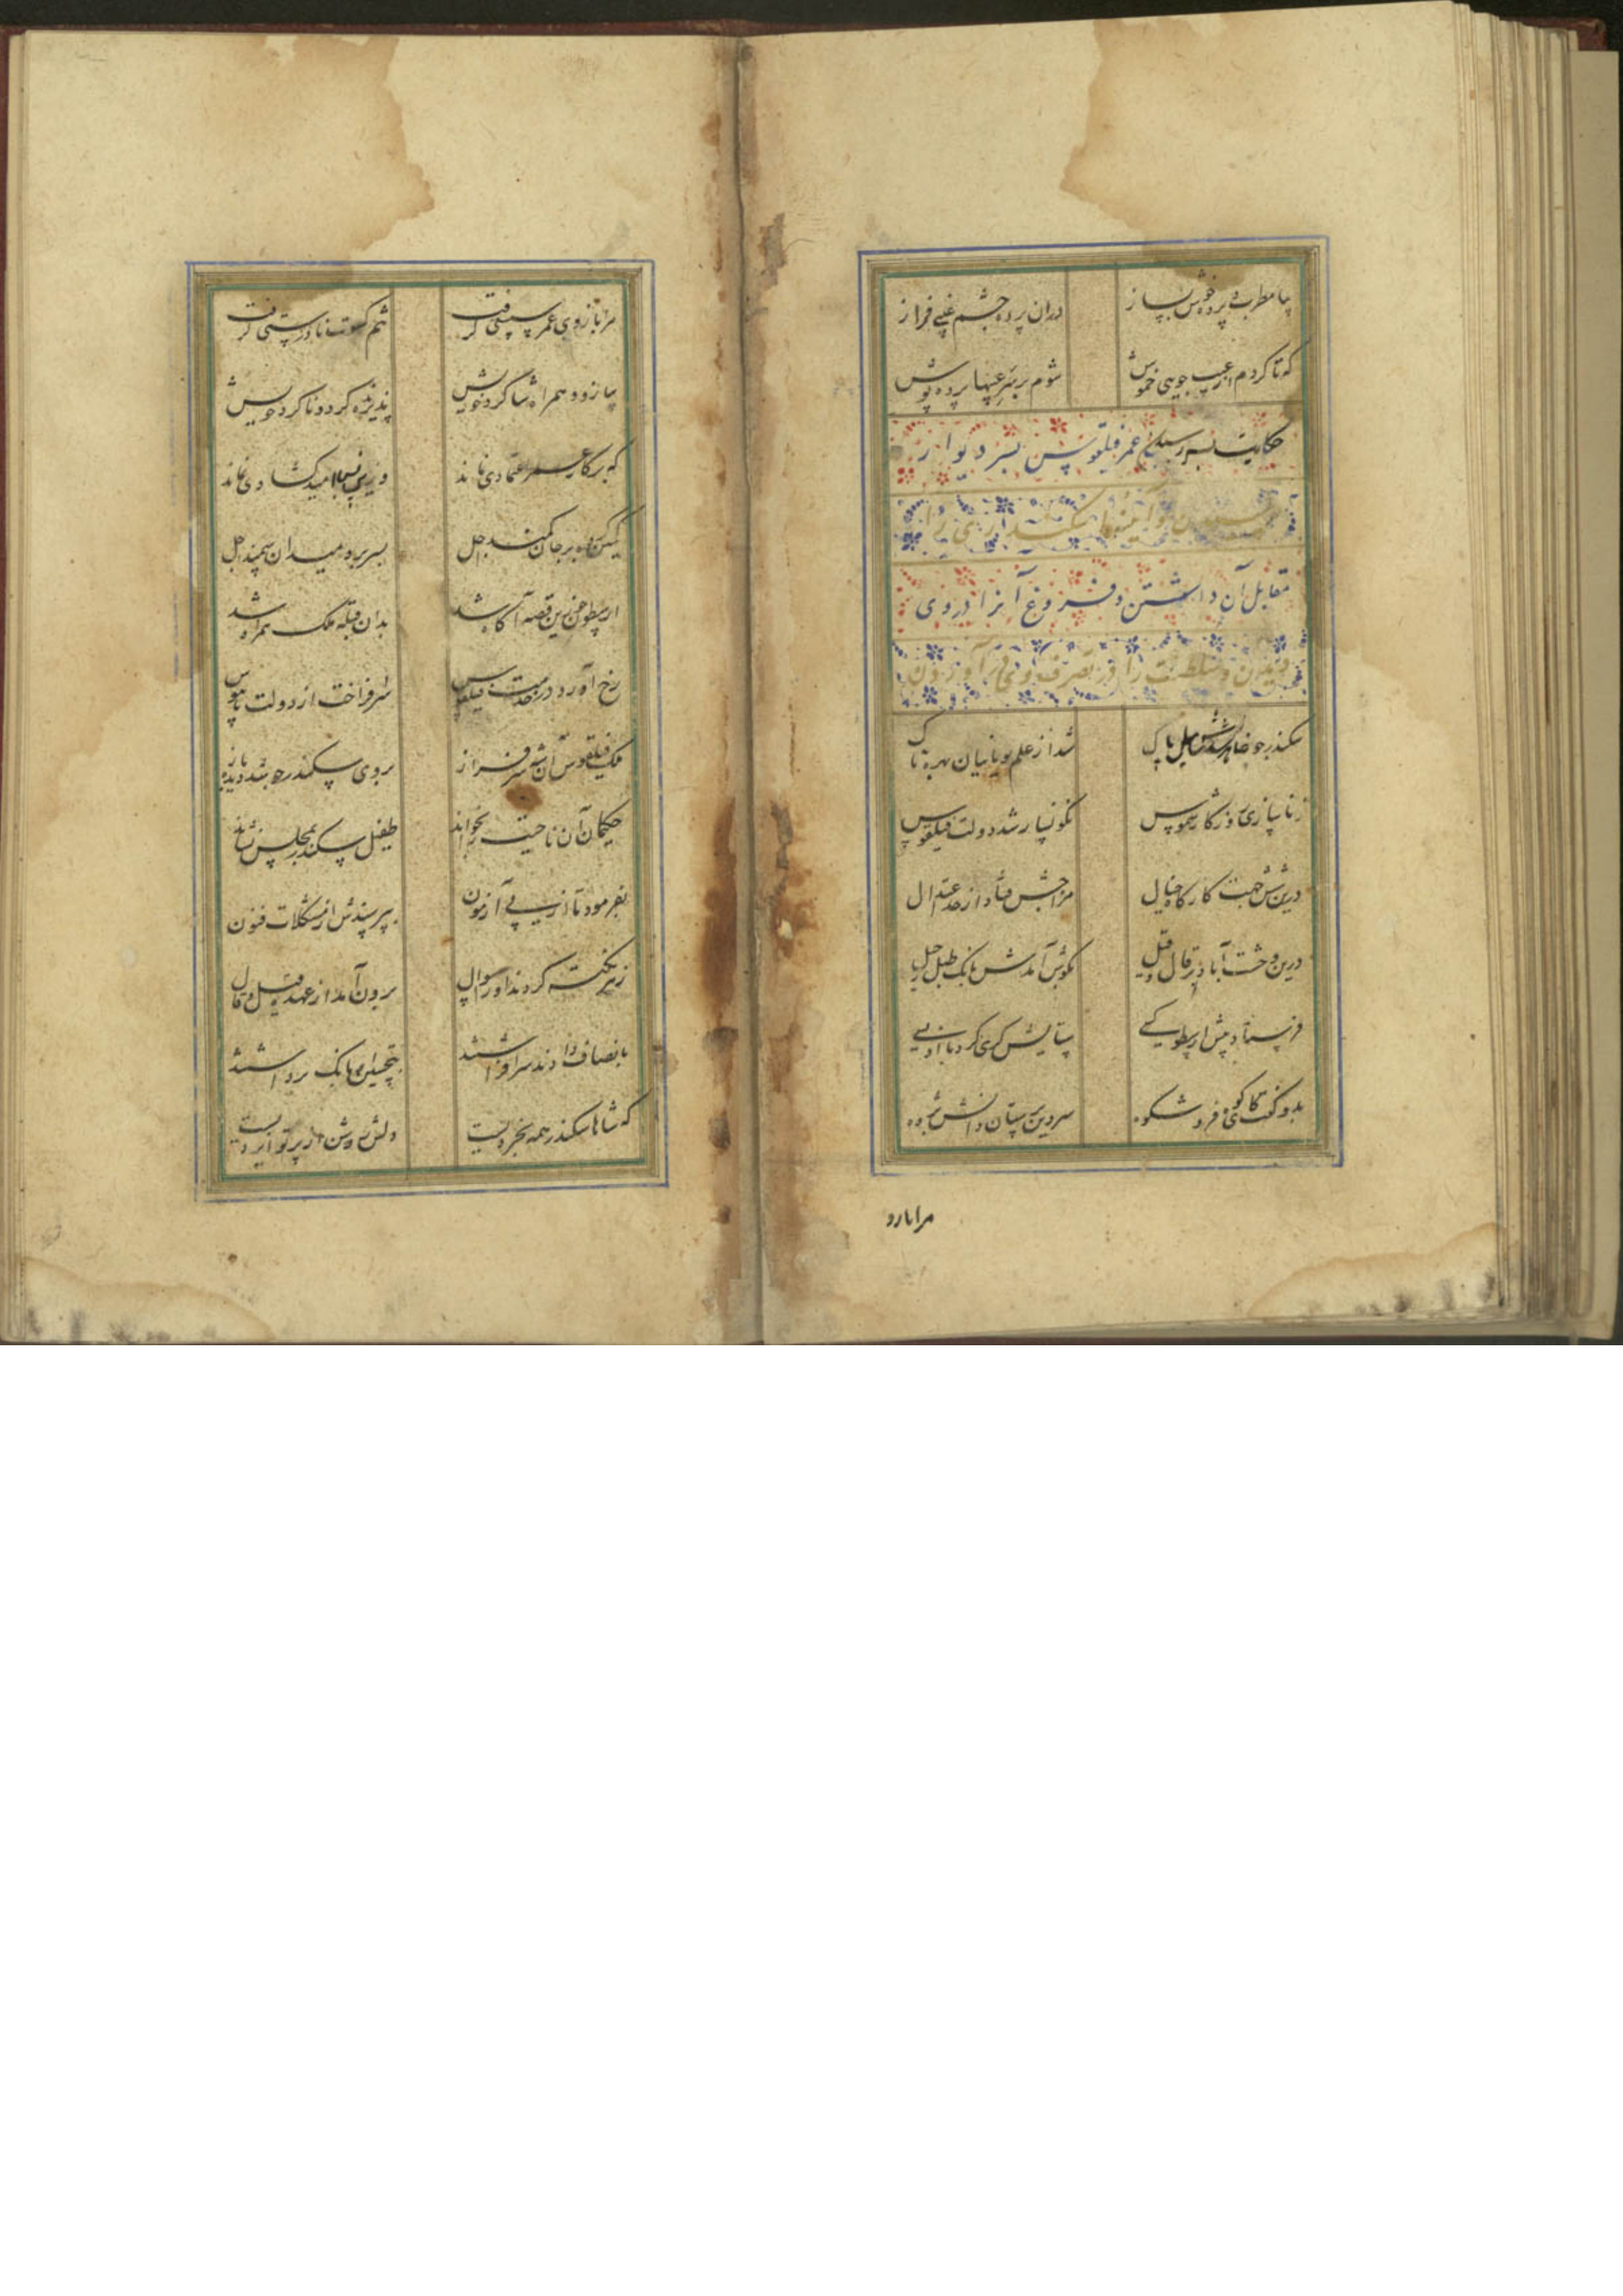 بیا مطرب و پرده خوش بساز دران پرده چشم فراز
که تا گردم از عیب جویی خموش شوم بر سر عیبها پرده پوش
حکایت بسر رسیدن عمر فیلقوس بسر دیوار
سکندری را
مقابل آن داشتن و فروغ آنرا در وی
دیدن و سلطنت را در تصرف وی در آوردن
سکندر چو پاک شد از علم یونانیان بهره ناک
ز ناسازی دور کار شموس نگونسار شد دولت فیلقوس
درین شش جهت کارگاه خیال مزاجش فتاد از حد اعتدال
درین وحشت آباد پر قال و قیل بگوش آمدش بانگ طبل رحیل
فرستاد پیش ارسطو کسی ستایش گری کرد با او بسی
بدو گفت کای کوه فر و شکوه سر دین پرستان دانش پژوه
مرا بازو
مرا بازوی عمر سستی گرفت تنم کسوت نادرستی گرفت
بیا زود همراه شاگرد خویش پذیرنده گرد ناکرد خویش
که بر کار عمر اعتمادی نماند وزین پس امید گشادی نماند
کمین کرده بر جان کمند اجل بسر برده میدان سمند اجل
ارسطو چو زین قصه آگاه شد بدان قبله ملک همراه شد
رخ آورد در خدمت فیلقوس سر افراخت از دولت پایبوس
ملک فیلقوس آن شه سرفراز بروی سکندر چو شد دیده باز
حکیمان آن ناحیت را بخواند طفیل سکندر بمجلس نشاند
بفرمود تا از پی آزمون بپرسندش از مشکلات فنون
ز هر نکته کردند از و سؤال برون آمد از عهده قیل و قال
بانصاف دادند سر افراشتند بتحسین او بانگ برداشتند
که شاها سکندر همه بخردیست دلش روشن از پرتو ایزدیست